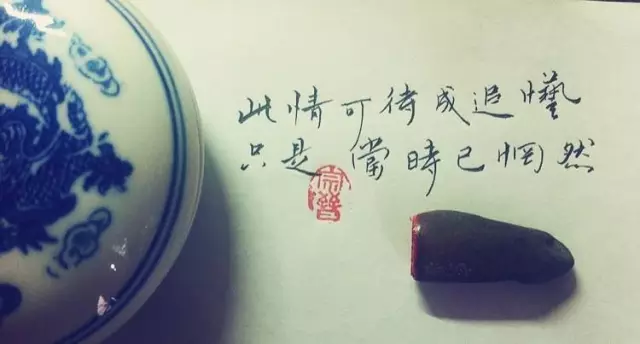 此情可待成追憶
只是當時已惘然